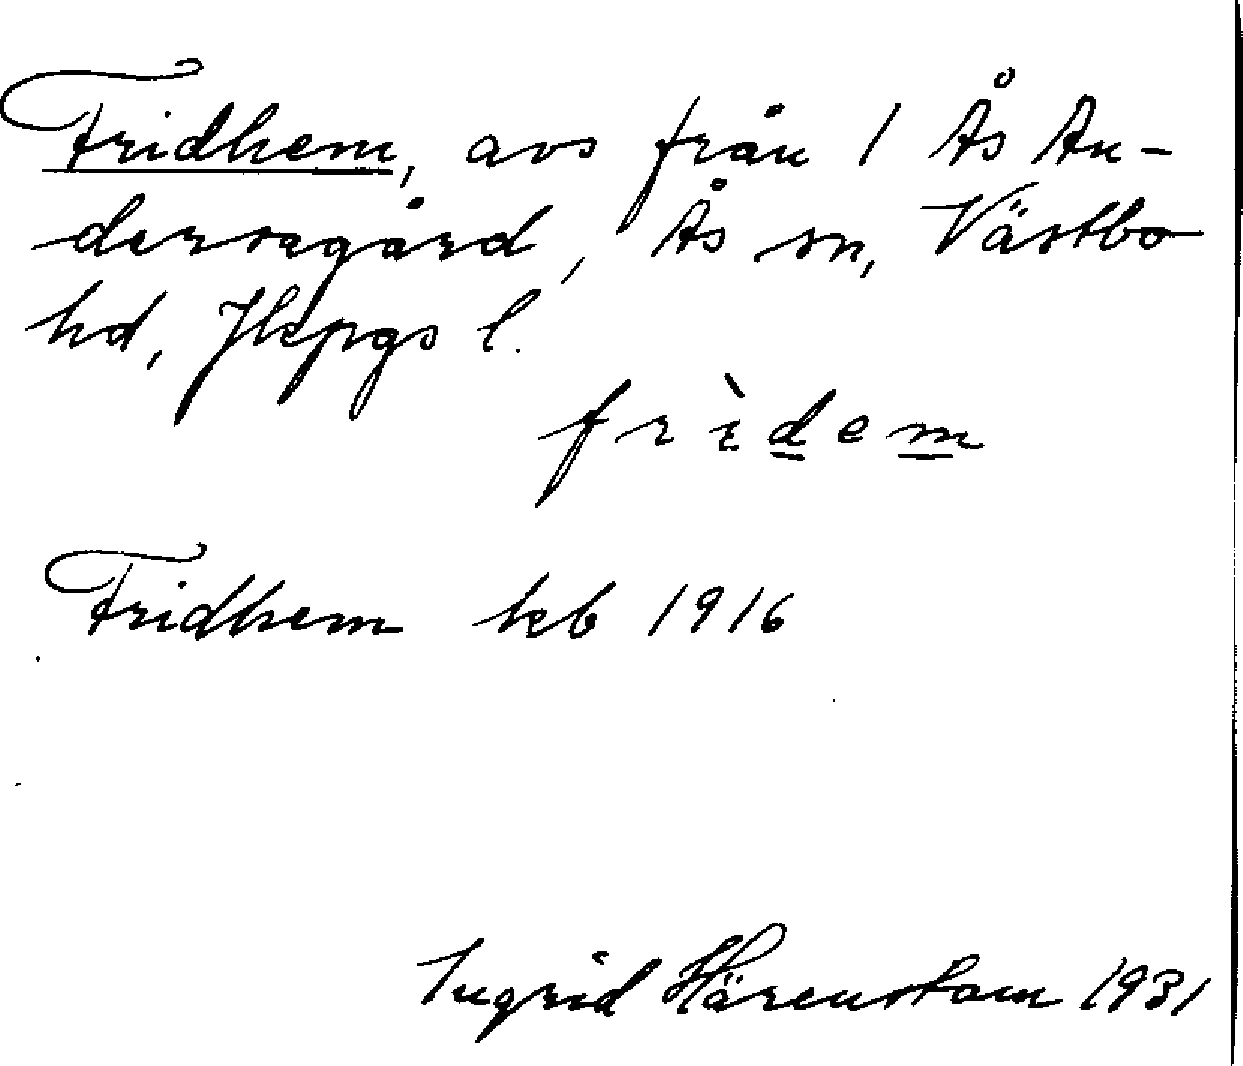 Fridhem, avs från 1 Ås An-
dersagård, Ås sn, Västbo
hd, Jkpgs l.
frìdem
Fridhem kb 1916
Ingrid Härenstam 1931